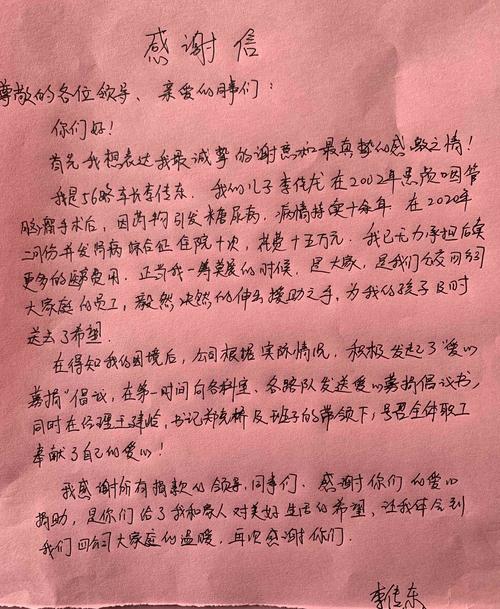 感谢信
尊敬的各位领导、亲爱的同事们：
你们好！
首先我想表达我最诚挚的谢意和最真挚的感激之情！
我是56路车长李传东．我的儿子李代龙在2002年患颅咽管
脑瘤手术后，因药物引发糖尿病．病情持续十余年．在2020年
二月份并发肾病综合征住院十次，花费十五万元．我已无力承担后续
更多的医药费用．正当我一筹莫展的时候．是大家，是我们公交四公司
大家庭的员工，毅然决然的伸出援助之手，为我的孩子及时
送去了希望．
在得知我的困境后，公司根据实际情况．积极发起了“爱心
募捐”倡议，在第一时间向各科室、各路队发送爱心募捐倡议书，
同时在经理王建峰，书记郑桥及班子的带领下，号召全体职工
奉献了自己的爱心！
我感谢所有捐款的领导．同事们．感谢你们的爱心
捐助，是你们给了我和家人对美好生活的希望．让我体会到
我们四公司大家庭的温暖，再次感谢你们．
李传东